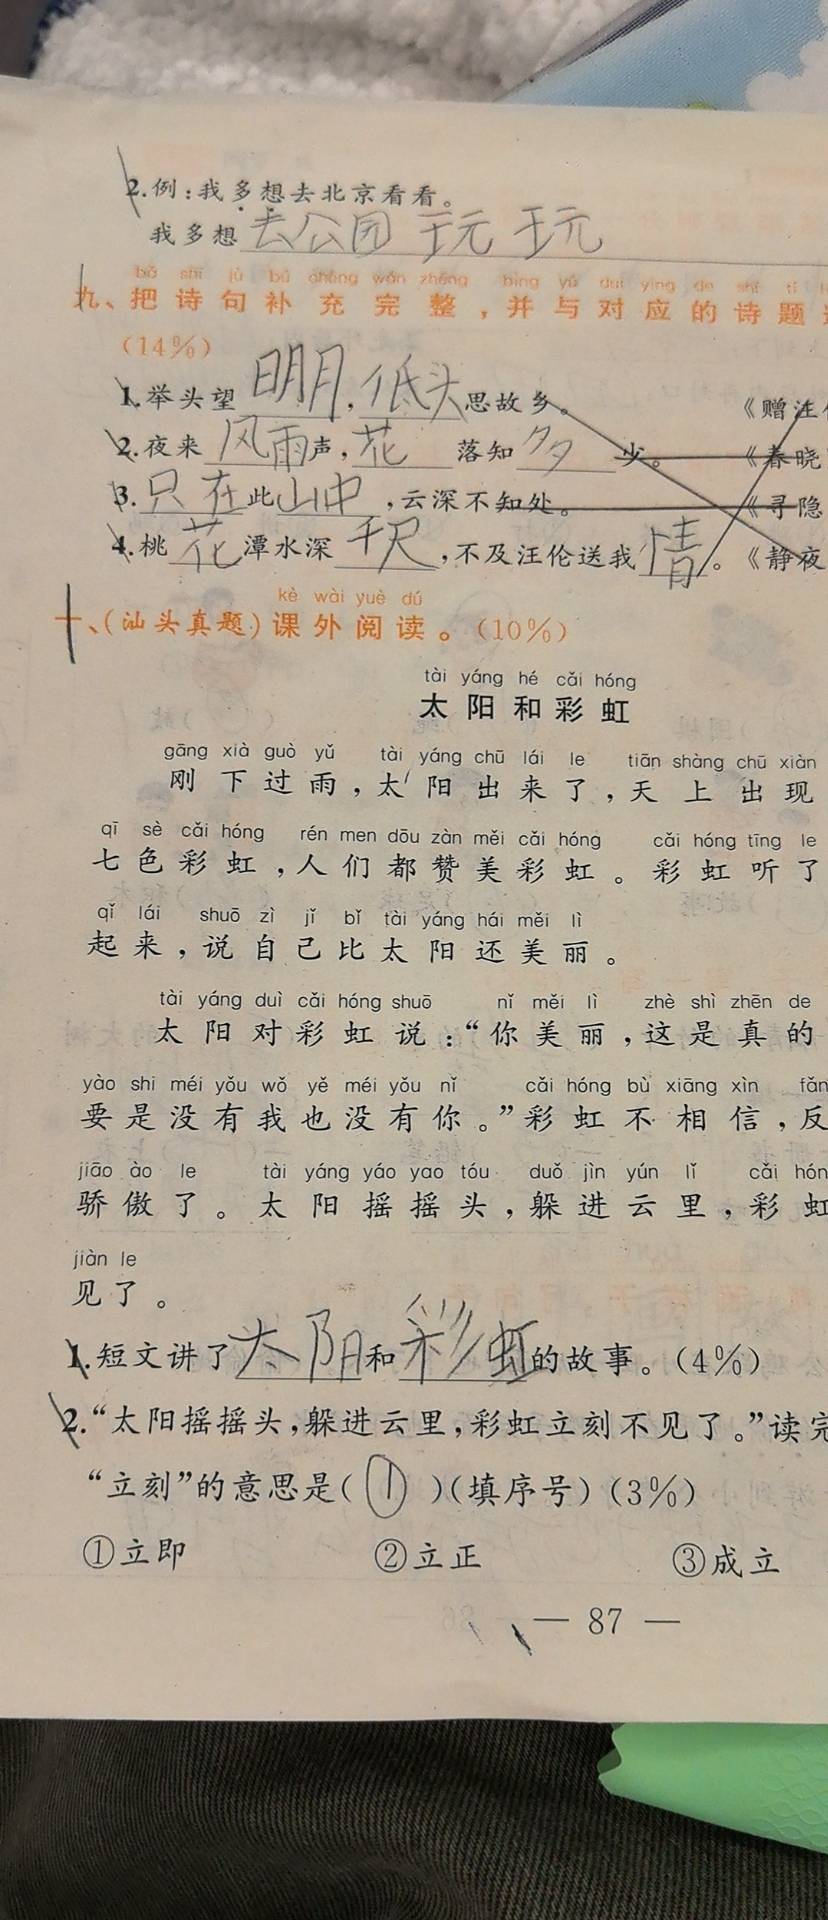 2.例:我多想去北京看看。
我多想去公园玩玩
bǎ shī jù bǔ chōng wán zhěng bìng yǔ duì yìng de shī tí
九、把诗句补充完整,并与对应的诗题
(14%)
1.举头望明月,低头思故乡。 《赠汪
2.夜来风雨声,花落知多少。 《春晓
3.只在此山中,云深不知处。 《寻隐
4.桃花潭水深千尺,不及汪伦送我情。 《静夜
kè wài yuè dú
十、(汕头真题)课外阅读。(10%)
tài yáng hé cǎi hóng
太阳和彩虹
gāng xià guò yǔ tài yáng chū lái le tiān shàng chū xiàn
刚下过雨,太阳出来了,天上出现
qī sè cǎi hóng rén men dōu zàn měi cǎi hóng cǎi hóng tīng le
七色彩虹,人们都赞美彩虹。彩虹听了
qǐ lái shuō zì jǐ bǐ tài yáng hái měi lì
起来,说自己比太阳还美丽。
tài yáng duì cǎi hóng shuō nǐ měi lì zhè shì zhēn de
太阳对彩虹说:“你美丽,这是真的
yào shi méi yǒu wǒ yě méi yǒu nǐ cǎi hóng bù xiāng xìn fǎn
要是没有我也没有你。”彩虹不相信,反
jiāo ào le tài yáng yáo yao tóu duǒ jìn yún lǐ cǎi hón
骄傲了。太阳摇摇头,躲进云里,彩虹
jiàn le
见了。
1.短文讲了太阳和彩虹的故事。(4%)
2.“太阳摇摇头,躲进云里,彩虹立刻不见了。”读完
“立刻”的意思是(①)(填序号)(3%)
①立即 ②立正 ③成立
— 87 —